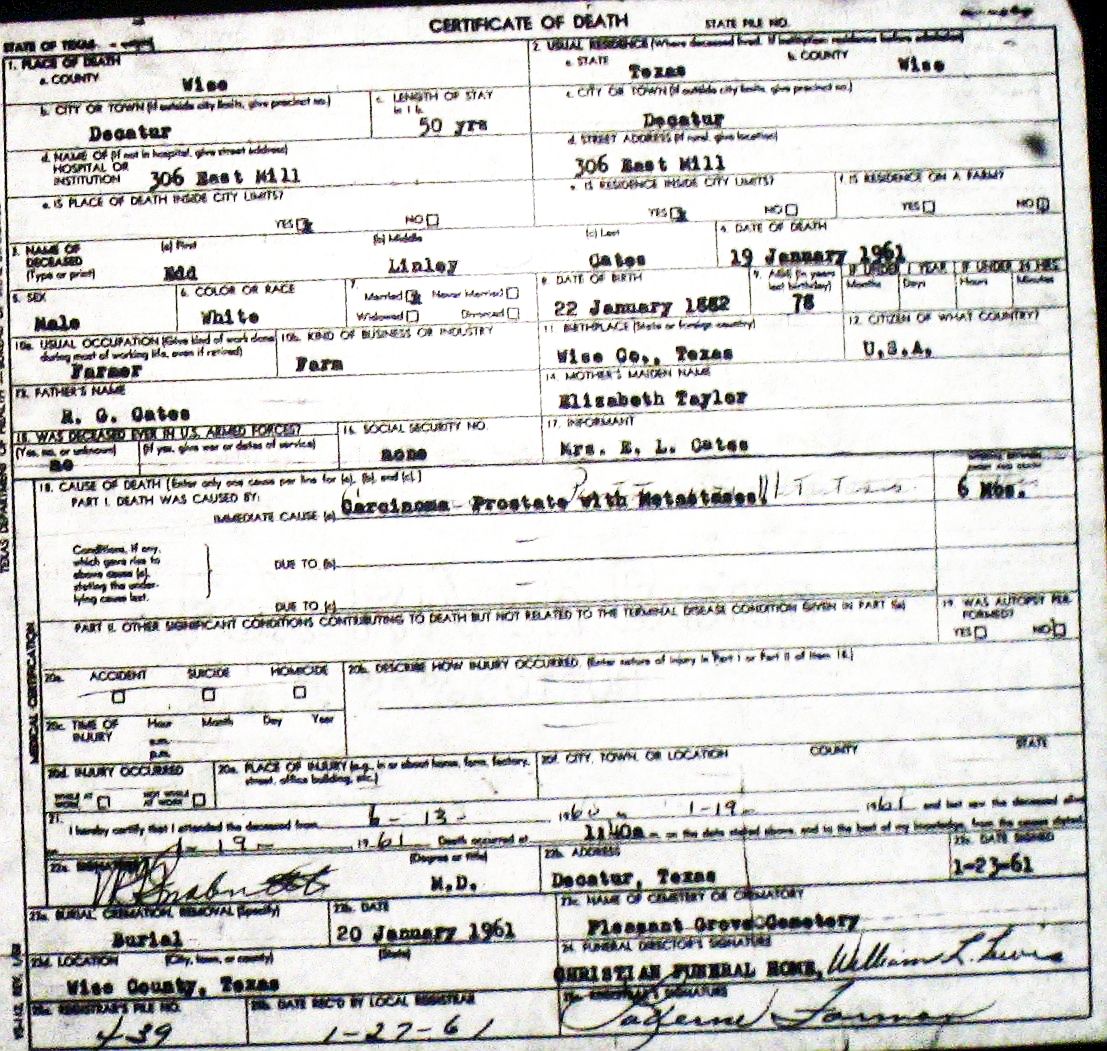 CERTIFICATE OF DEATH STATE FILE NO.
STATE OF TEXAS
1. PLACE OF DEATH
a. COUNTY
Wise
2. USUAL RESIDENCE (Where deceased lived. If institution: residence before admission)
a. STATE
Texas
b. COUNTY
Wise
b. CITY OR TOWN (If outside city limits, give precinct no.)
Decatur
c. LENGTH OF STAY
in 1 b.
50 yrs
c. CITY OR TOWN (If outside city limits, give precinct no.)
Decatur
d. NAME OF (If not in hospital, give street address)
HOSPITAL OR
INSTITUTION 306 East Mill
d. STREET ADDRESS (If rural, give location)
306 East Mill
e. IS PLACE OF DEATH INSIDE CITY LIMITS?
YES NO
e. IS RESIDENCE INSIDE CITY LIMITS?
YES NO
f. IS RESIDENCE ON A FARM?
YES NO
3. NAME OF
DECEASED
(Type or print)
(a) First
Edd
(b) Middle
Linley
(c) Last
Gates
4. DATE OF DEATH
19 January 1961
5. SEX
Male
6. COLOR OR RACE
White
7.
Married Never Married
Widowed Divorced
8. DATE OF BIRTH
22 January 1882
9. AGE (In years
last birthday)
78
IF UNDER 1 YEAR
Months Days
IF UNDER 24 HRS.
Hours Minutes
10a. USUAL OCCUPATION (Give kind of work done
during most of working life, even if retired)
Farmer
10b. KIND OF BUSINESS OR INDUSTRY
Farm
11. BIRTHPLACE (State or foreign country)
Wise Co., Texas
12. CITIZEN OF WHAT COUNTRY?
U.S.A.
13. FATHER'S NAME
R. G. Gates
14. MOTHER'S MAIDEN NAME
Elizabeth Taylor
15. WAS DECEASED EVER IN U.S. ARMED FORCES?
(Yes, no, or unknown) (If yes, give war or dates of service)
no
16. SOCIAL SECURITY NO.
none
17. INFORMANT
Mrs. E. L. Gates
18. CAUSE OF DEATH (Enter only one cause per line for (a), (b), and (c).)
PART I. DEATH WAS CAUSED BY:
IMMEDIATE CAUSE (a) Carcinoma Prostate with Metastases.
6 Mos.
Conditions, if any,
which gave rise to
above cause (a),
stating the under-
lying cause last.
DUE TO (b)
DUE TO (c)
PART II. OTHER SIGNIFICANT CONDITIONS CONTRIBUTING TO DEATH BUT NOT RELATED TO THE TERMINAL DISEASE CONDITION GIVEN IN PART I(a)
19. WAS AUTOPSY PER-
FORMED?
YES NO
MEDICAL CERTIFICATION
20a. ACCIDENT SUICIDE HOMICIDE
20b. DESCRIBE HOW INJURY OCCURRED. (Enter nature of injury in Part I or Part II of item 18.)
20c. TIME OF
INJURY
Hour Month Day Year
a.m.
p.m.
20d. INJURY OCCURRED
WHILE AT
WORK
NOT WHILE
AT WORK
20e. PLACE OF INJURY (e.g., in or about home, farm, factory,
street, office building, etc.)
20f. CITY, TOWN, OR LOCATION COUNTY STATE
21.
I hereby certify that I attended the deceased from 6-13- 1960 1-19 1961 and last saw the deceased alive
on 1-19- 1961 Death occurred at 1:40a m. on the date stated above, and to the best of my knowledge, from the causes stated.
22a. SIGNATURE
(Degree or title)
M.D.
22b. ADDRESS
Decatur, Texas
22c. DATE SIGNED
1-23-61
23a. BURIAL, CREMATION, REMOVAL (Specify)
Burial
23b. DATE
20 January 1961
23c. NAME OF CEMETERY OR CREMATORY
Pleasant Grove Cemetery
23d. LOCATION (City, town, or county) (State)
Wise County, Texas
24. FUNERAL DIRECTOR'S SIGNATURE
CHRISTIAN FUNERAL HOME, William L. Lewis
25a. REGISTRAR'S FILE NO.
439
25b. DATE REC'D BY LOCAL REGISTRAR
1-27-61
25c. REGISTRAR'S SIGNATURE